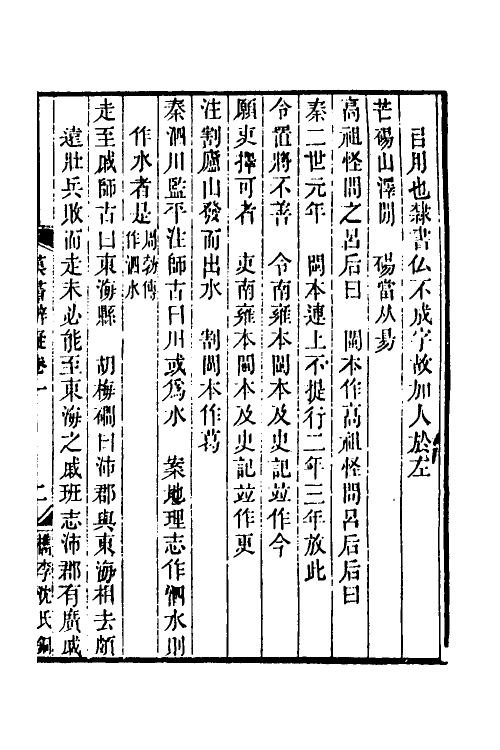 㠯用也隸書仏不成字故加人於左
芒碭山澤閒　碭當从昜
高祖怪問之呂后曰　閩本作高祖怪問呂后后曰
秦二世元年　閩本連上不提行二年三年放此
令置將不善　令南雍本閩本及史記竝作今
願吏擇可者　吏南雍本閩本及史記竝作更
注割廬山發而出水　割閩本作葛
秦泗川監平注師古曰川或爲水　案地理志作泗水則
作水者是周勃傳
作泗水
走至戚師古曰東海縣　胡梅磵曰沛郡與東海相去頗
遠壯兵敗而走未必能至東海之戚班志沛郡有廣戚
漢書辨疑卷一　二　檇李沈氏銅